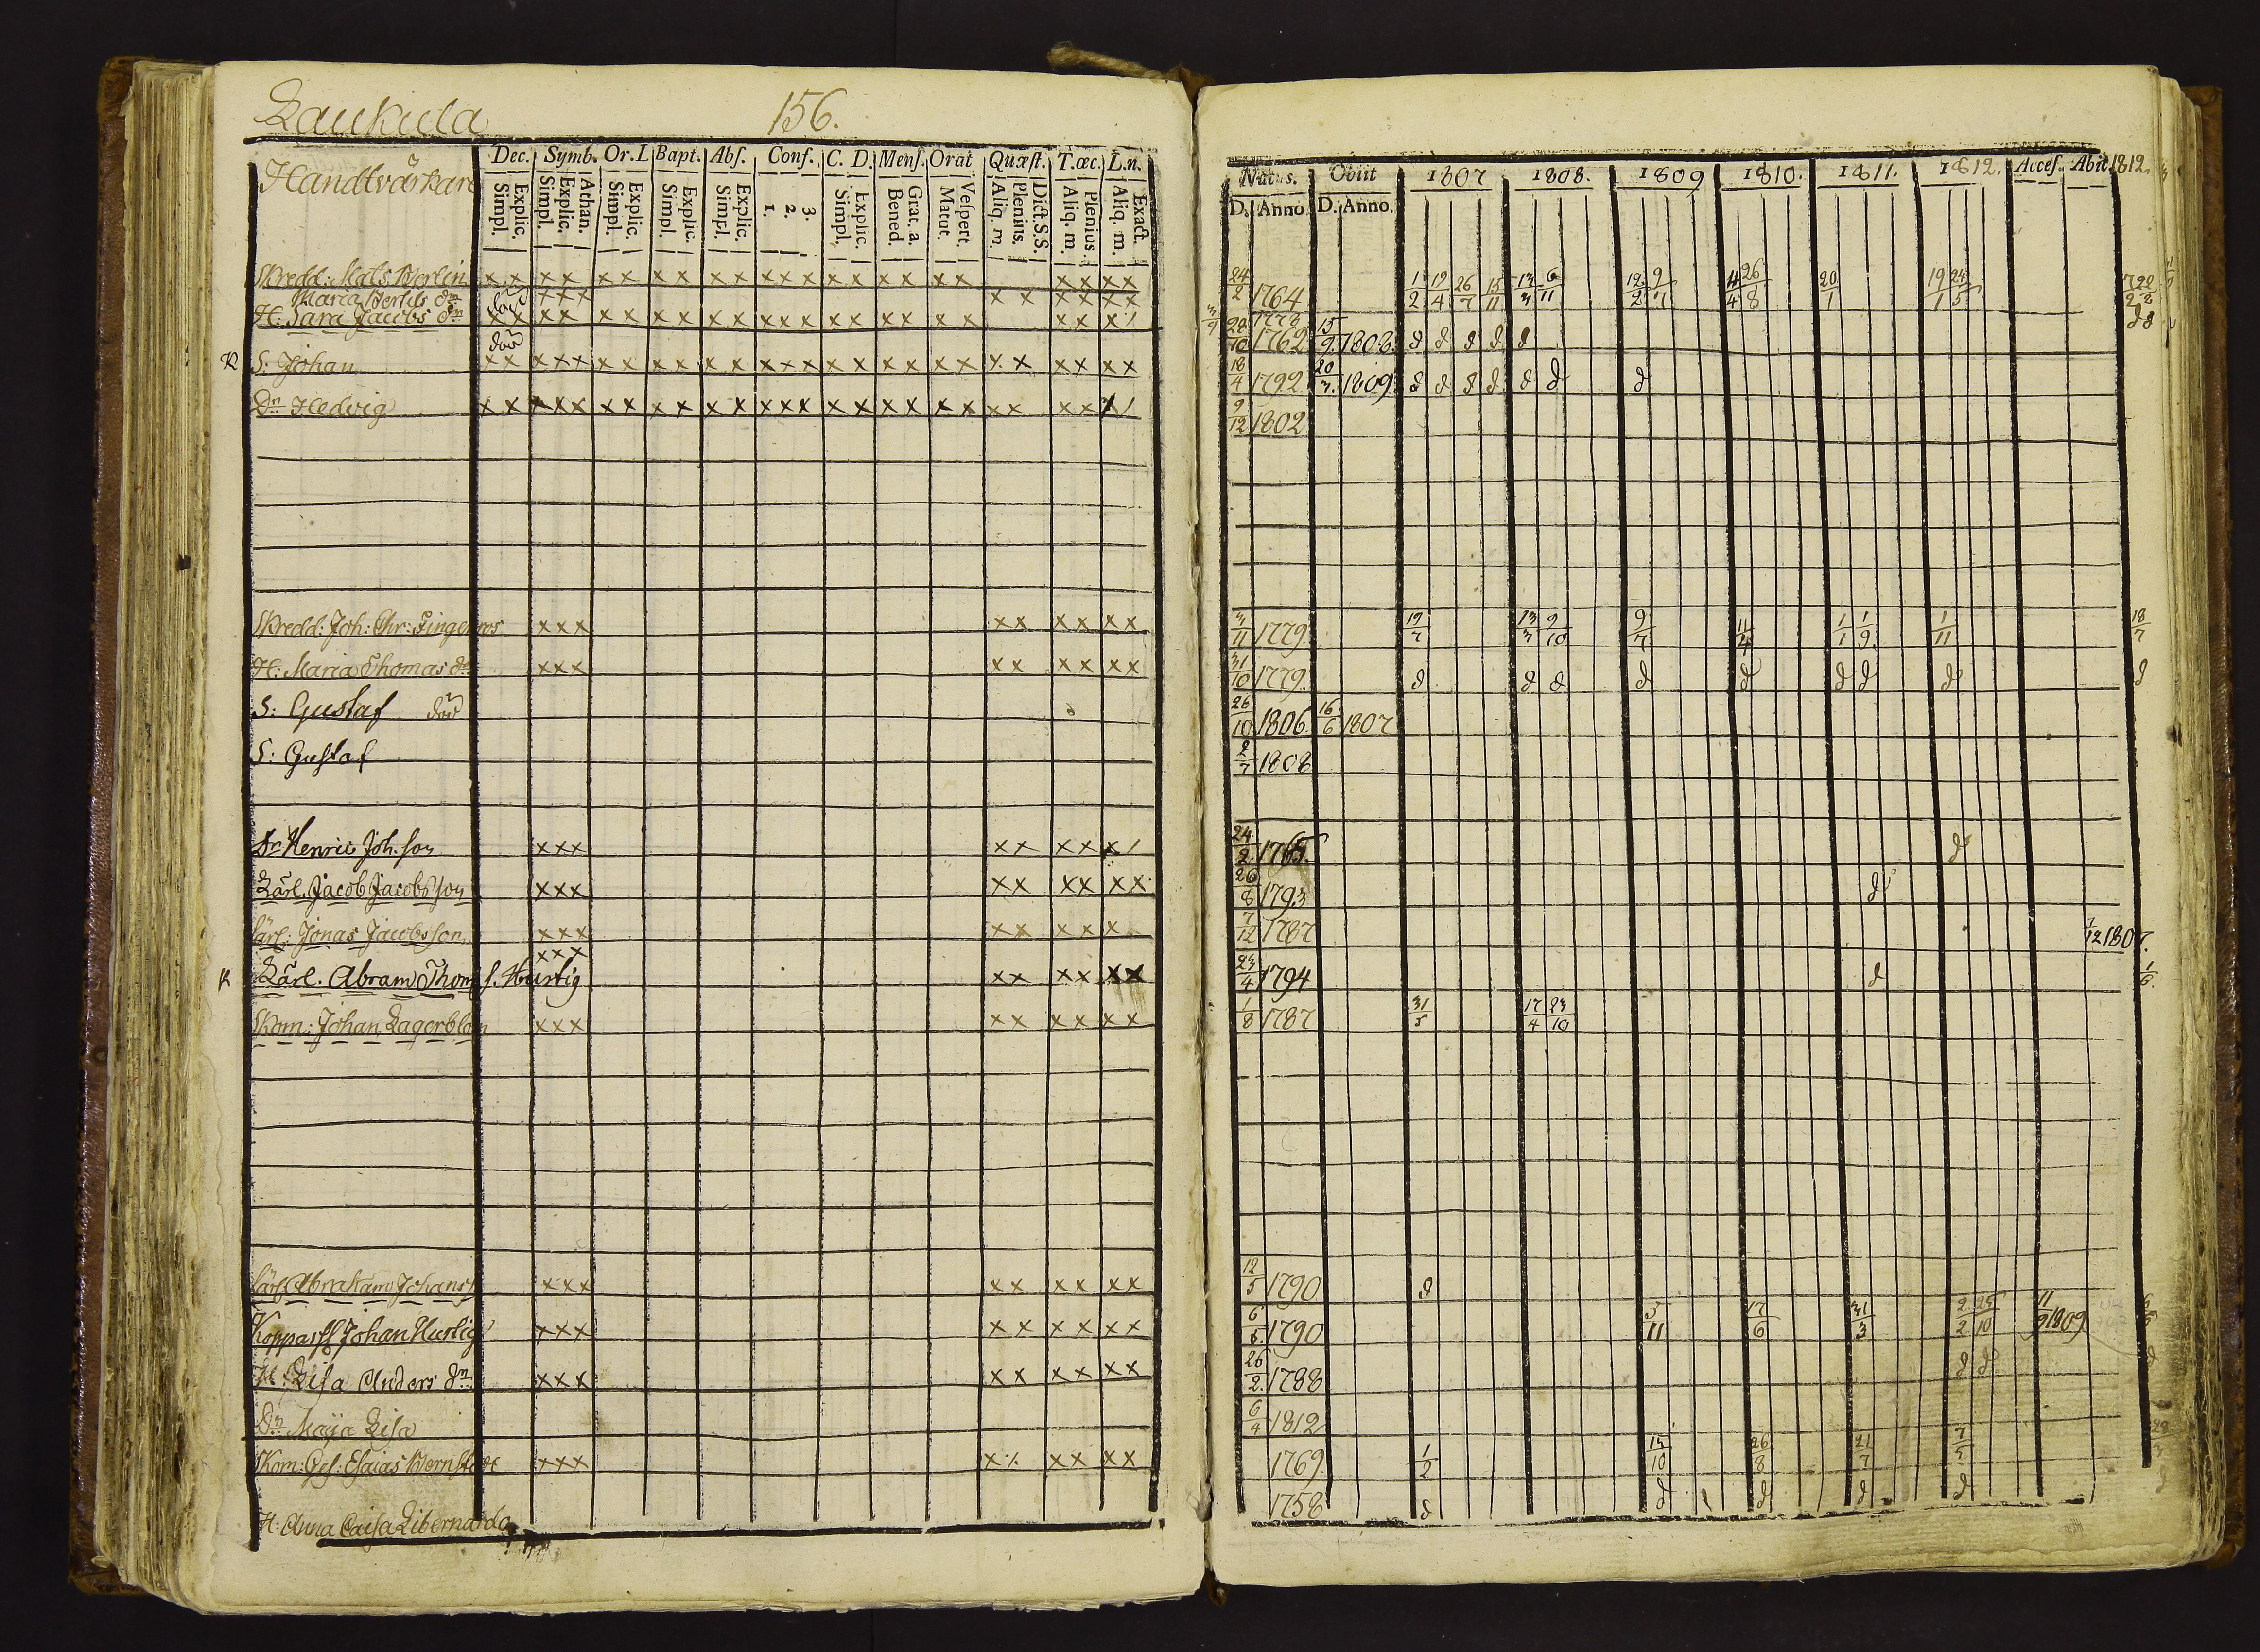 Laukula 156.
Handtvärkare
Dec. Symb. Or. I. Bapt. Abs. Conf. C. D. Mens. Orat Quæst. T. œc. L. n.
Simpl. Explic. Simpl. Explic. Athan. Simpl. Explic. Simpl. Explic. Simpl. Explic. 1. 2. 3. Simpl. Explic. Bened. Grat. a. Matut. Vespert. Aliq. m. Plenius. Dict. S.S. Aliq. m. Plenius. Aliq. m. Exact.
Skredd: Mats Berlin xx xx xx xx xx xxx xx xx xx xx xx
Maria Bertils dr xxx xx xx xx
H: Sara Jacobs dr död xx xx xx xx xx xxx xx xx xx xx x/
R S: Johan död xx xxx xx xx xx xxx xx xx xx xx xx xx
Dr Hedvig xx xxx xx xx xx xxx xx xx xx xx xx x/
Skredd: Joh: Chr: Fingerroos xxx xx xx xx
H: Maria Thomas dr xxx xx xx xx
S: Gustaf död
S: Gustaf
Dr Henric Joh. son xxx xx xx x/
Karl. Jacob Jacobsson xxx xx xx xx
Karl: Jonas Jacobsson xxx xx xx x
xxx
R Karl. Abram Thom s. Hurtig xx xx xx
Skom: Johan Lagerblom xxx xx xx xx
Karl Abraham Johans s xxx xx xx xx
Koppassl Johan Hurtig xxx xx xx xx
H: Lisa Anders dr xxx xx xx xx
Dr Maija Lisa
Skom: Ges: Esaias Bernstedt xxx xx xx xx
H: Anna Caisa Libernarda
Natus. Obiit 1807 1808. 1809 1810. 1811. 1812. Acces. Abit 1812.
D. Anno. D. Anno.
24/2 1764 1/2 19/4 26/7 15/11 13/3 6/11 12/2 9/7 4/4 26/8 20/1 19/1 24/5
3/9 1778
28/10 1762 15/9 1808. d d d d d
18/4 1792 20/3 1809 d d d d d d d
9/12 1802
3/11 1779. 19/7 13/3 9/10 9/7 11/4 1/1 1/9 1/11 18/7
31/10 1779. d d d d d d d d d
26/10 1806. 16/6 1807
2/7 1808
24/2 1765. d
26/8 1793 d
7/12 1787 7/12 1807.
23/4 1794 d
1/8 1787 31/5 17/4 23/10
12/5 1790 d
6/5 1790 5/11 17/6 31/3 2/2 25/10 11/9 1809
26/2 1788 d d d
6/4 1812
1769 1/2 13/10 26/8 21/7 7/5
1758 d d d d d